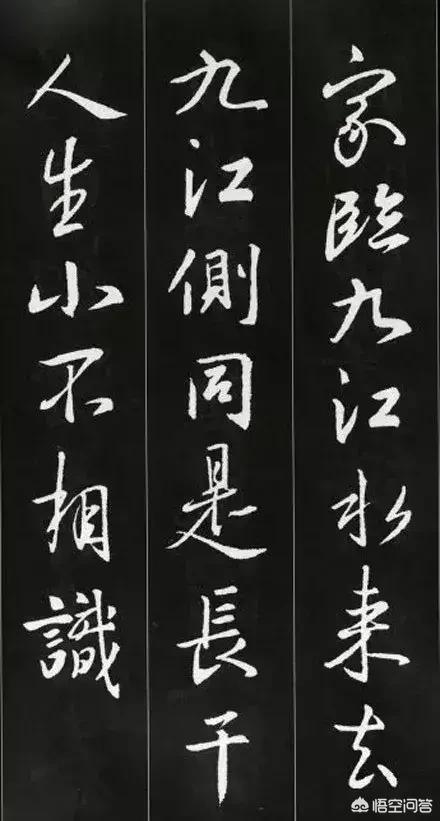 家臨九江水来去
九江側同是長干
人生小不相識
悟空问答